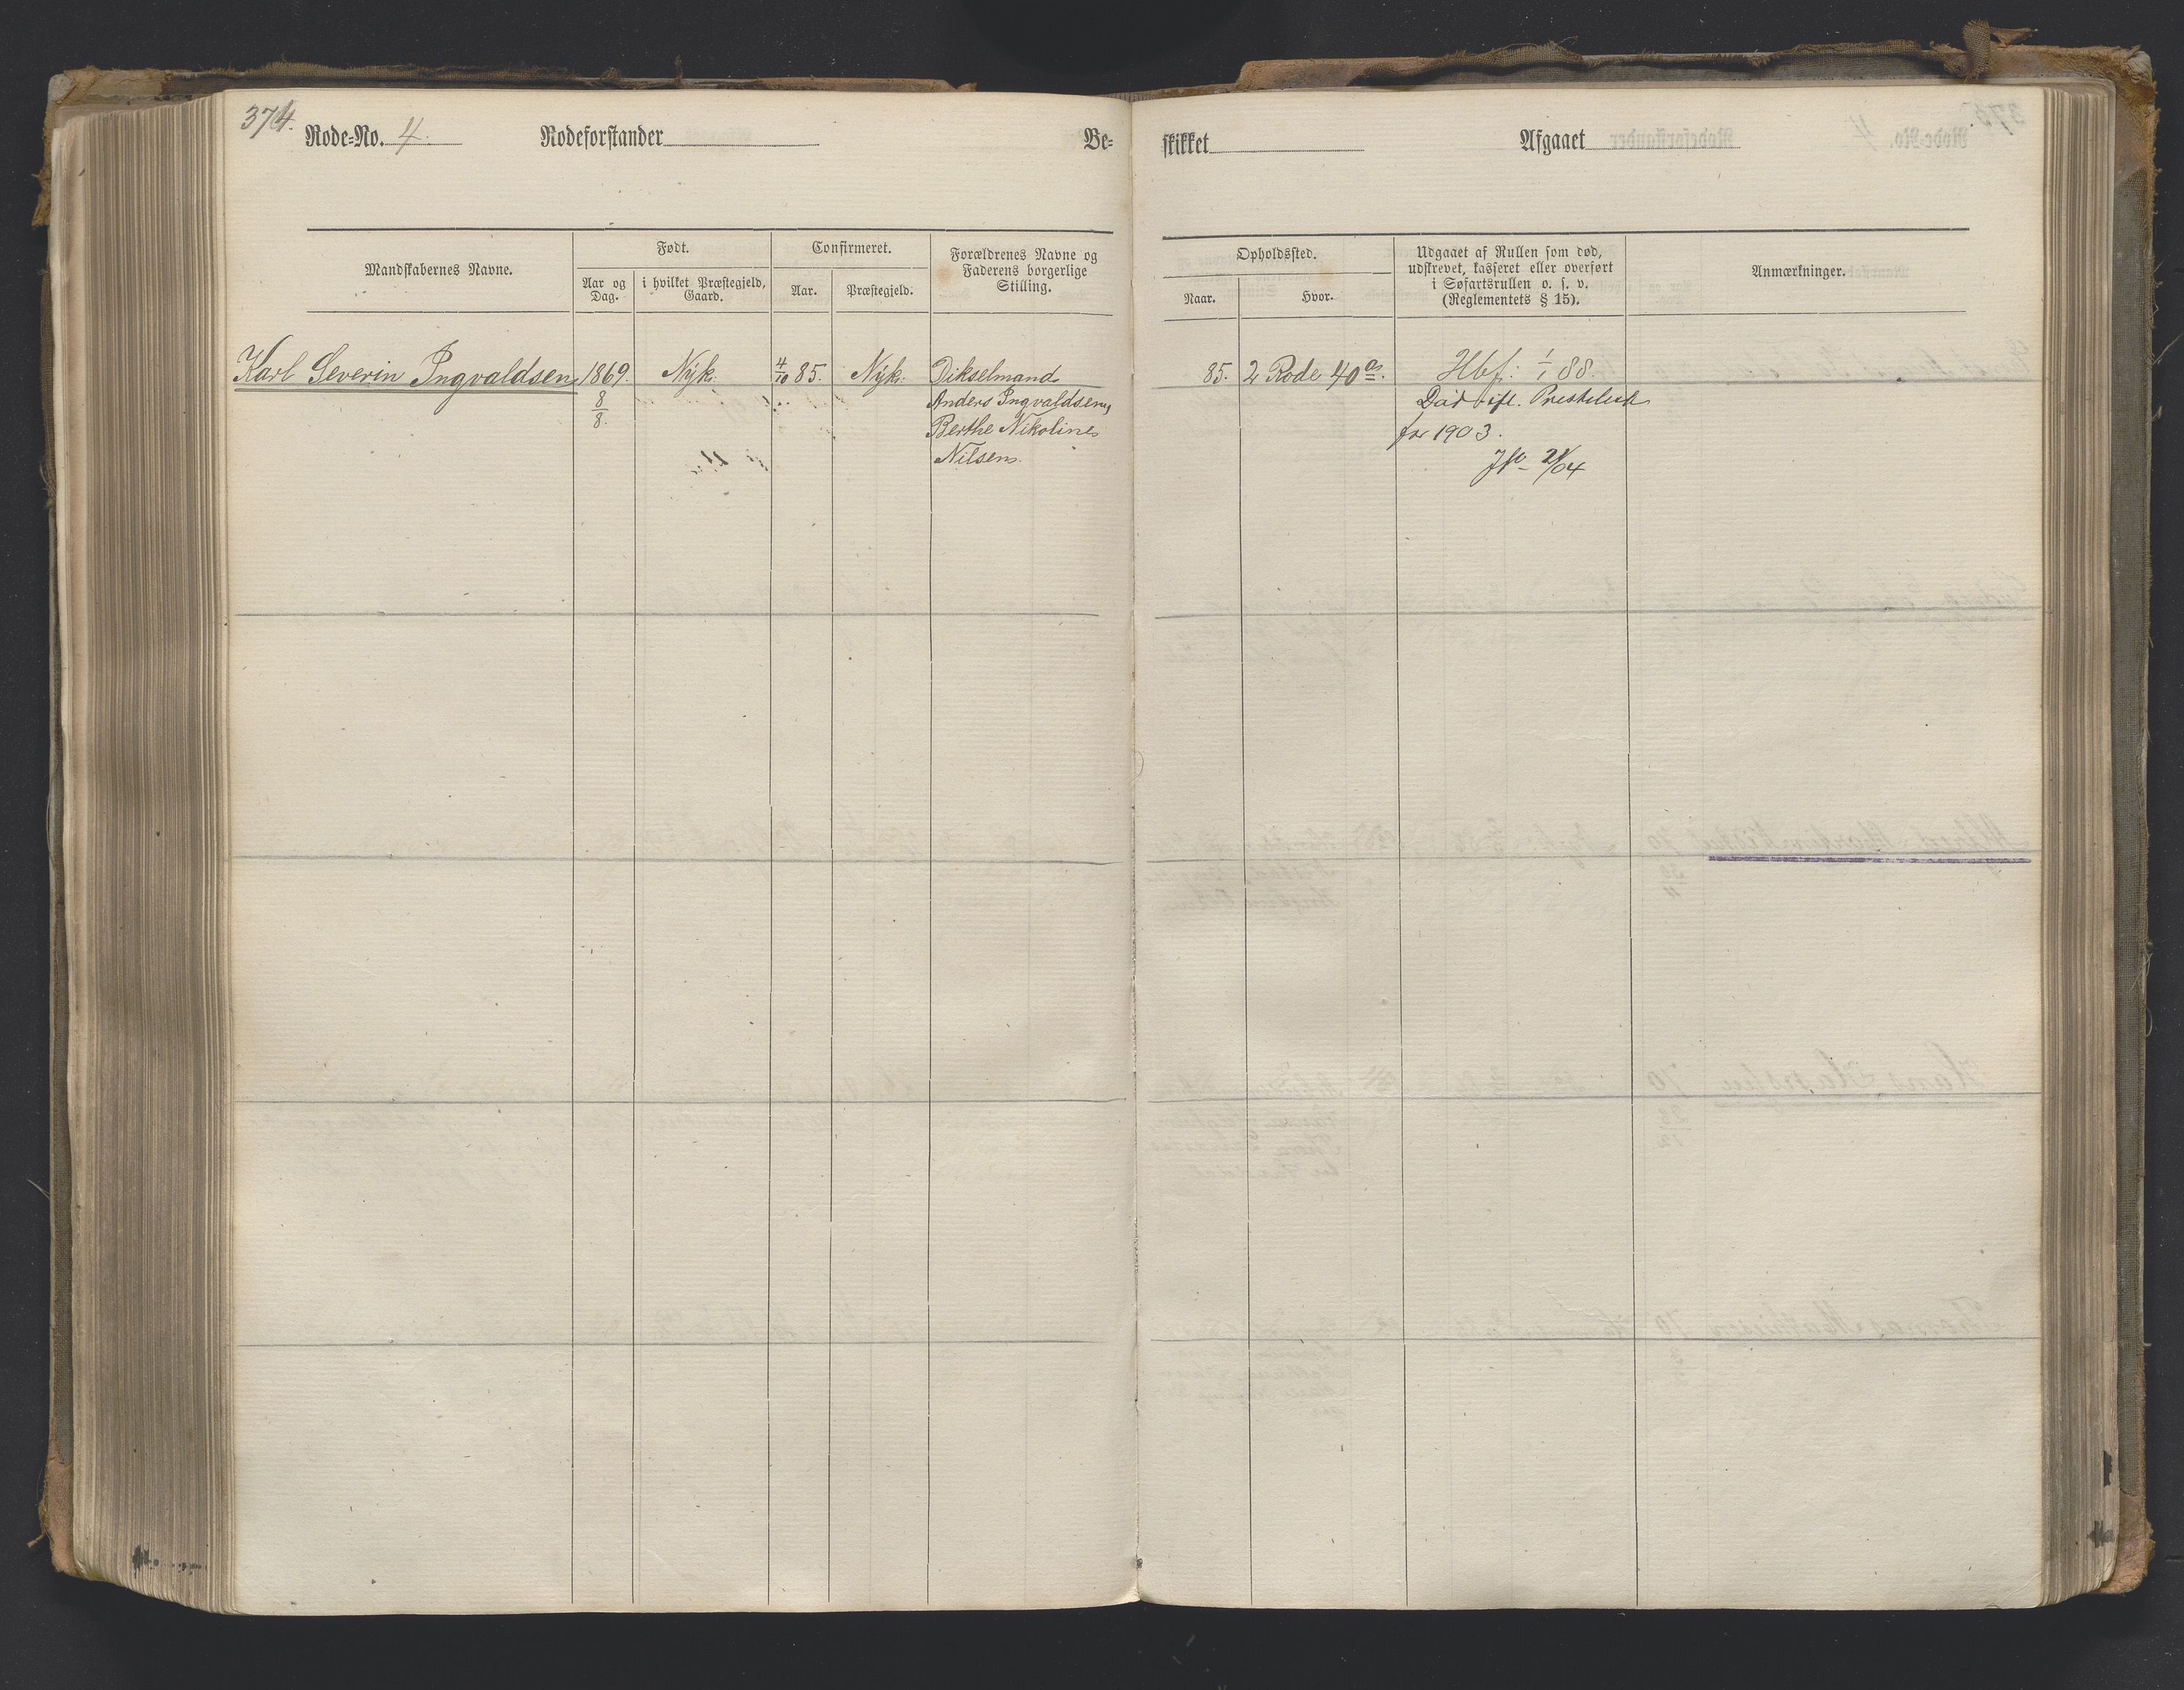 374.
Rode=No. 4. Rodeforstander Be=
skikket Afgaaet
Mandskabernes Navne.
Født.
Aar og
Dag.
i hvilket Præstegjeld,
Gaard.
Confirmeret.
Aar.
Præstegjeld.
Forældrenes Navne og
Faderens borgerlige
Stilling.
Opholdssted.
Naar.
Hvor.
Udgaaet af Rullen som død,
udskrevet, kasseret eller overført
i Søfartsrullen o. s. v.
(Reglementets § 15).
Anmærkninger.
Karl Severin Ingvaldsen
1869.
8/8.
Nyk:
4/10 85.
Nyk:
Dikselmand
Anders Ingvaldsen,
Berthe Nikoline
Nilsen.
85.
2 Rode 40
Hbf: 1/1 88.
Død ifl.
for 1903.